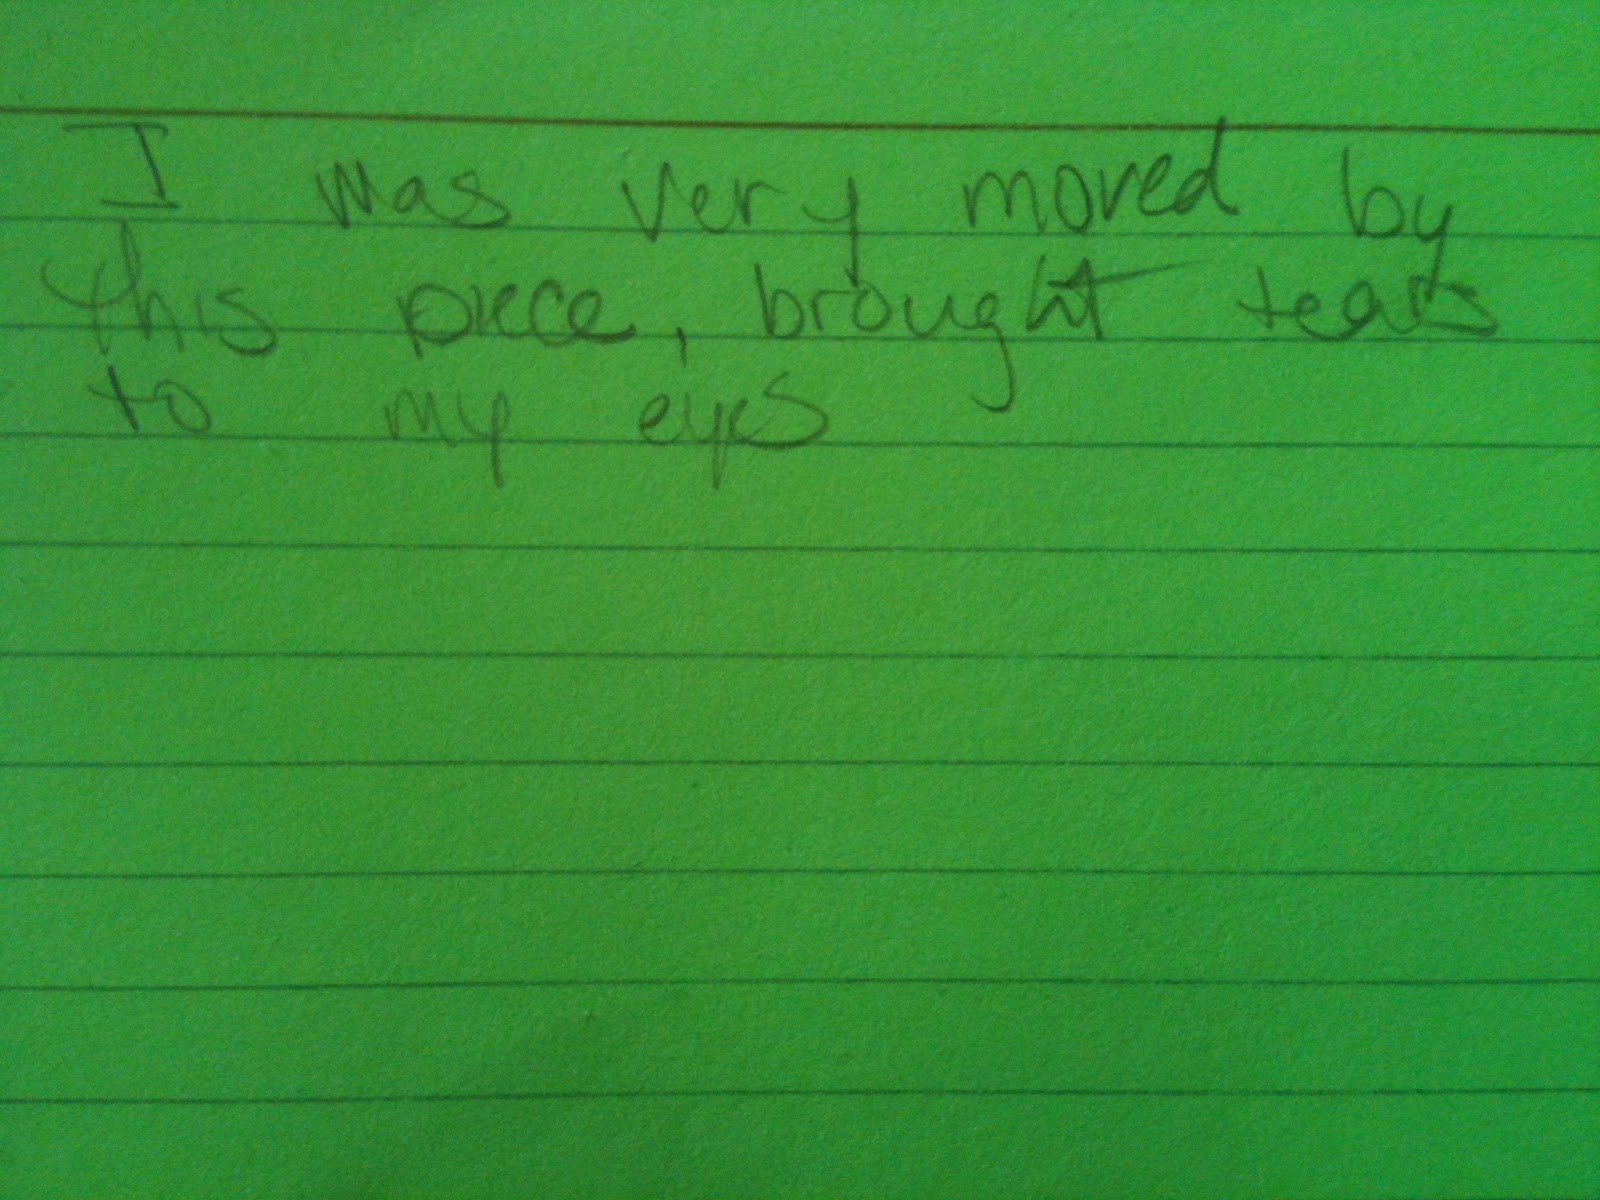 I was very moved by
this piece, brought tears
to my eyes